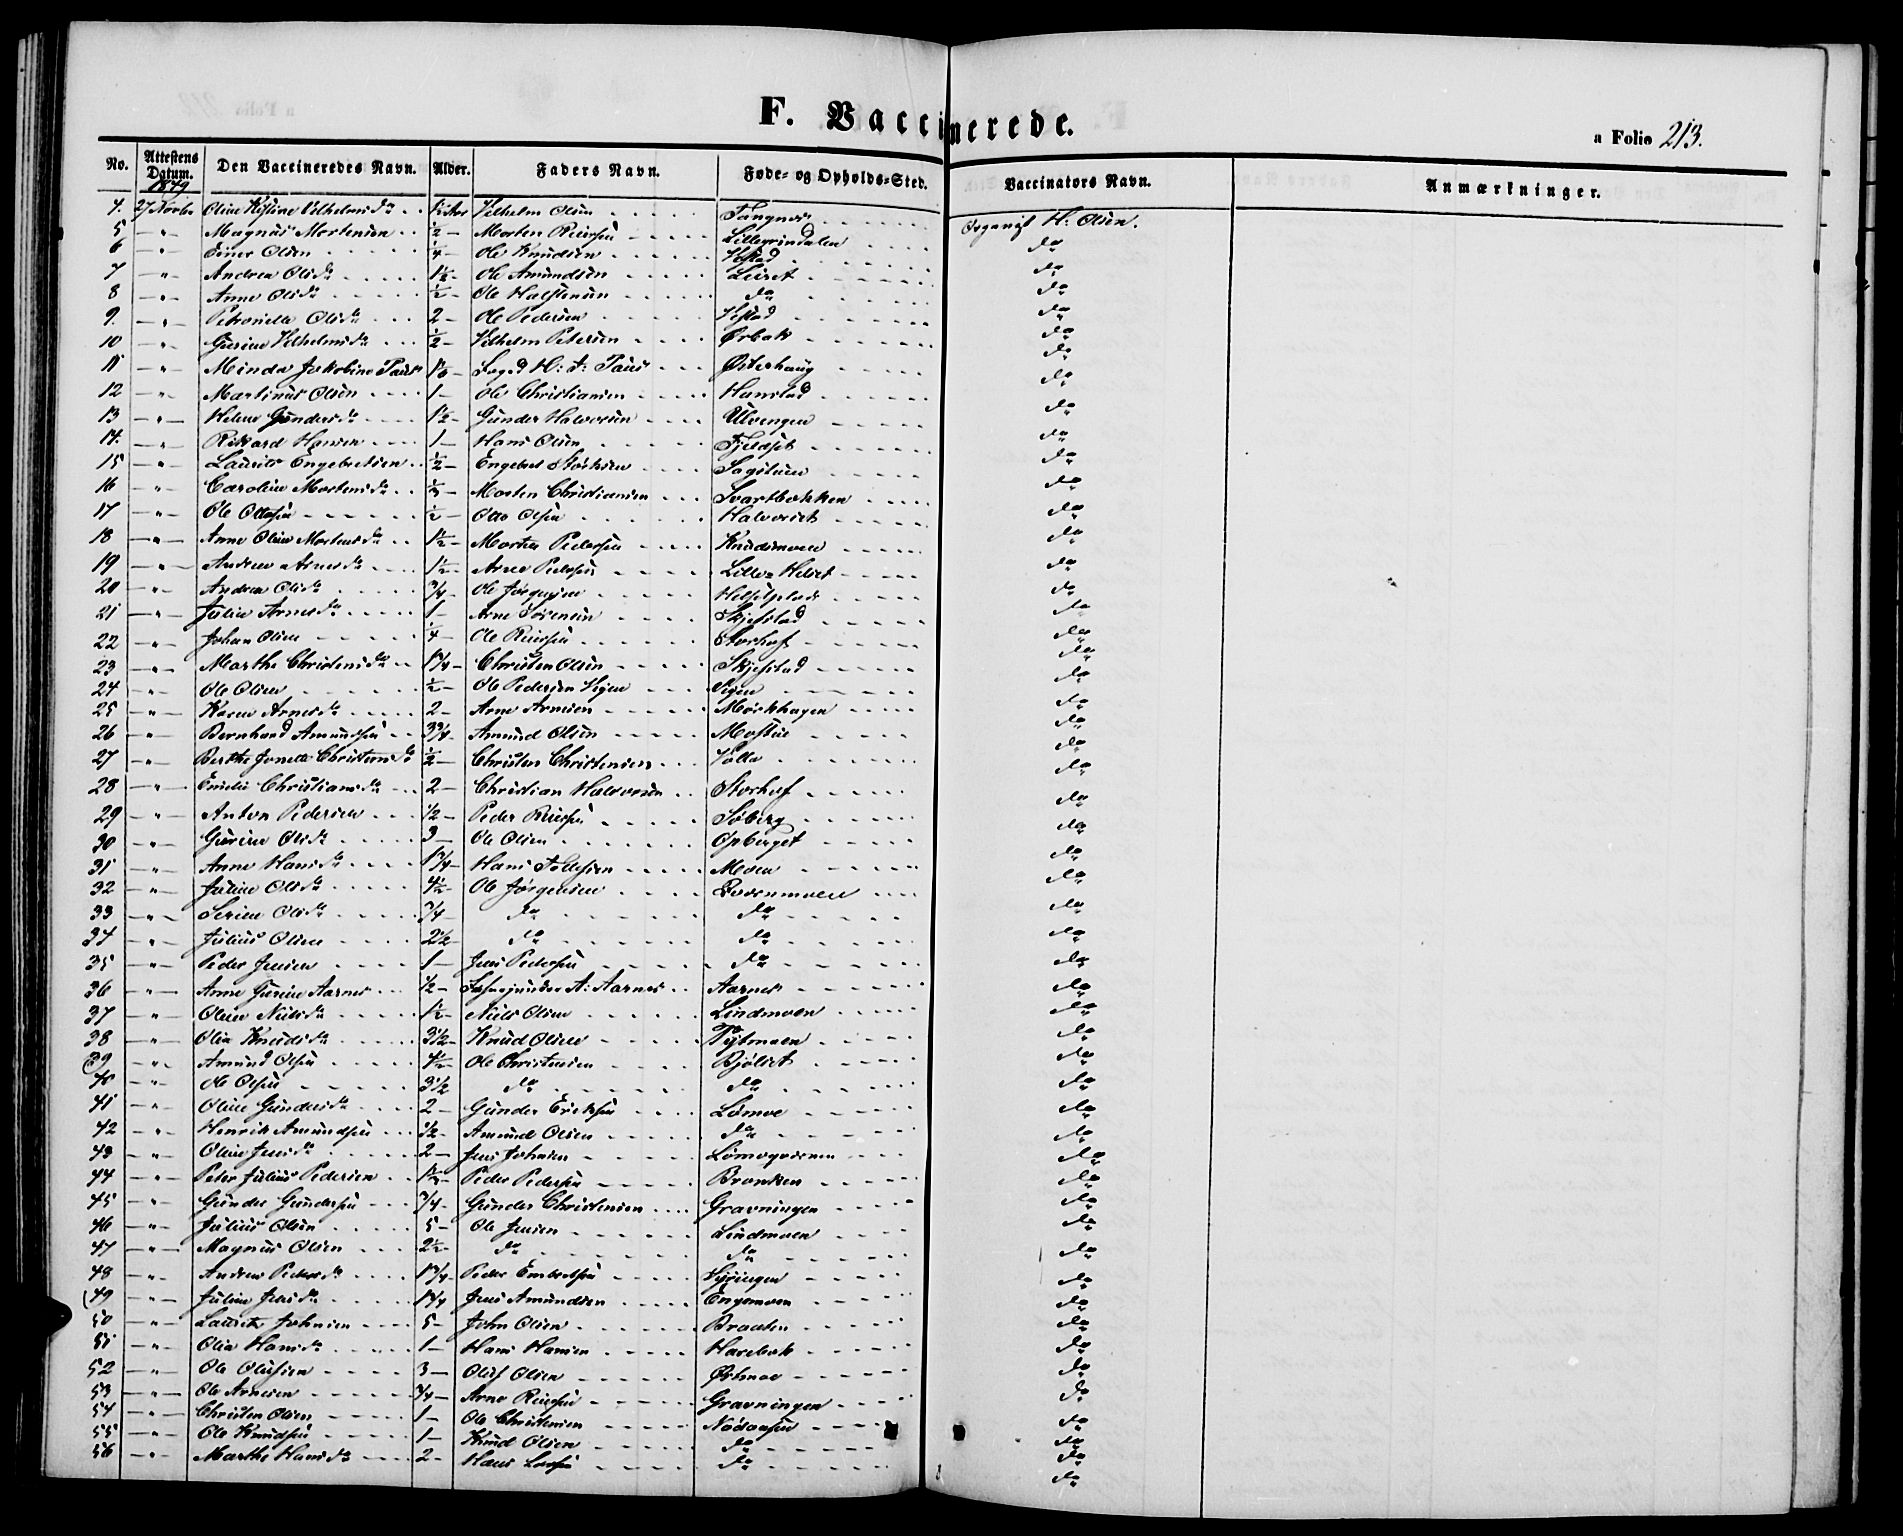 F. Vaccinerede.
a Folio 213.
No. Attestens Datum. Den Vaccineredes Navn. Alder. Faders Navn. Føde- og Opholds-Sted. Vaccinators Navn. Anmærkninger.
1849
4. 27 Novbr Oline Kistine Vilhelmsdr ½ Aar Vilhelm Olsen Fangnes Organist H: Olsen.
5 -"- Magnus Mortensen ½ - Morten Reiersen Lillegrindalen do
6 -"- Einer Olsen ¼ - Ole Knudsen do
7 -"- Andrea Olsdr 1½ - Ole Amundsen Luset do
8 -"- Anne Olsdr ½ - Ole Halstensen do do
9. -"- Petronelle Olsdr 2 - Ole Pedersen do
10 -"- Gurine Vilhelmsdr ½ - Vilhelm Petersen Ørbæk do
11 -"- Minda Jakobine Paus Foged H: J: Paus Østerhaug do
12 -"- Martinus Olsen 1 - Ole Christiansen Hanstad do
13 -"- Helene Gundersdr 1½ - Gunder Halvorsen Ulvengen do
14. -"- Rikard Hansen 1 - Hans Olsen Fjeldset do
15 -"- Laurits Engebretsen ½ - Engebret Sagstuen do
16 -"- Caroline Mortensdr ½ - Morten Christiansen Svartbækken do
17 -"- Ole Ottesen ½ - Otto Olsen Halvorset do
18 -"- Anne Oline Mortensdr 1½ - Morten Pedersen Knudsmoen do
19 -"- Andrea Arnesdr 1½ - Arne Pedersen Lille-Helset do
20 -"- Andrea Olsdr ¾ - Ole Jørgensen Helsetplads do
21 -"- Juline Arnesdr 1 - Arne Sørensen Skjefstad do
22 -"- Johan Olsen ¼ - Ole Reiersen Storhof do
23 -"- Marthe Christensdr 1¾ - Christen Olsen Skjefstad do
24 -"- Ole Olsen ½ - Ole Pedersen Vigen Vigen do
25 -"- Karen Arnesdr 2 - Arne Arnesen Mørkhagen do
26 -"- Bernhard Amundsen 3¾ - Amund Olsen Mostue do
27 -"- Berthe Jonette Christensdr ½ - Christen Christensen do
28 -"- Emelie Christiansdr 2 - Christian Halvorsen Storhof do
29 -"- Anton Pedersen ½ - Peder Reiersen Søberg do
30 -"- Gurine Olsdr 3 - Ole Olsen Opberget do
31 -"- Anne Hansdr 1¾ - Hans Tollefsen Moen do
32 -"- Juline Olsdr 4½ - Ole Jørgensen Evenmoen do
33 -"- Serine Olsdr ¾ - do do do
34 -"- Julius Olsen 2½ - do do do
35 -"- Peder Jensen 1 - Jens Pedersen do do
36 -"- Anne Gurine Aarnes ½ - A: Aarnes Aarnes do
37 -"- Oline Nielsdr 1½ - Niels Olsen Lindmoen do
38 -"- Olea Knudsdr 3½ - Knud Olsen do
39 -"- Amund Olsen 4½ - Ole Christensen Bjølset do
40 -"- Ole Olsen 3½ do do do
41 -"- Oline Gundersdr 2 - Gunder Eriksen Lømoe do
42 -"- Henrik Amundsen ½ - Amund Olsen do do
43 -"- Oline Jensdr 2 - Jens Johnsen Lømoqværnen do
44 -"- Peter Julius Pedersen 1½ - Peder Pedersen Bronken do
45 -"- Gunder Gundersen ¾ - Gunder Christensen Gravningen do
46 -"- Julius Olsen 5 - Ole Jensen Lindmoen do
47 -"- Magnus Olsen 2½ - do do do
48 -"- Andrea Pedersdr 1¾ - Peder Embretsen do
49 -"- Juline Jensdr 1¾ Jens Amundsen Engemoen do
50 -"- Lauritz Johnsen 5 - John Olsen Braaten do
51 -"- Olea Hansdr 1 - Hans Hansen Harebæk do
52 -"- Ole Olufsen 3 - Oluf Olsen Østmoe do
53 -"- Ole Arnesen ¾ - Arne Reiersen Gravningen do
54 -"- Christen Olsen 1 - Ole Christensen do
55 -"- Ole Knudsen 1 - Knud Olsen do do
56 -"- Marthe Hansdr 2 - Hans Larsen do do
do